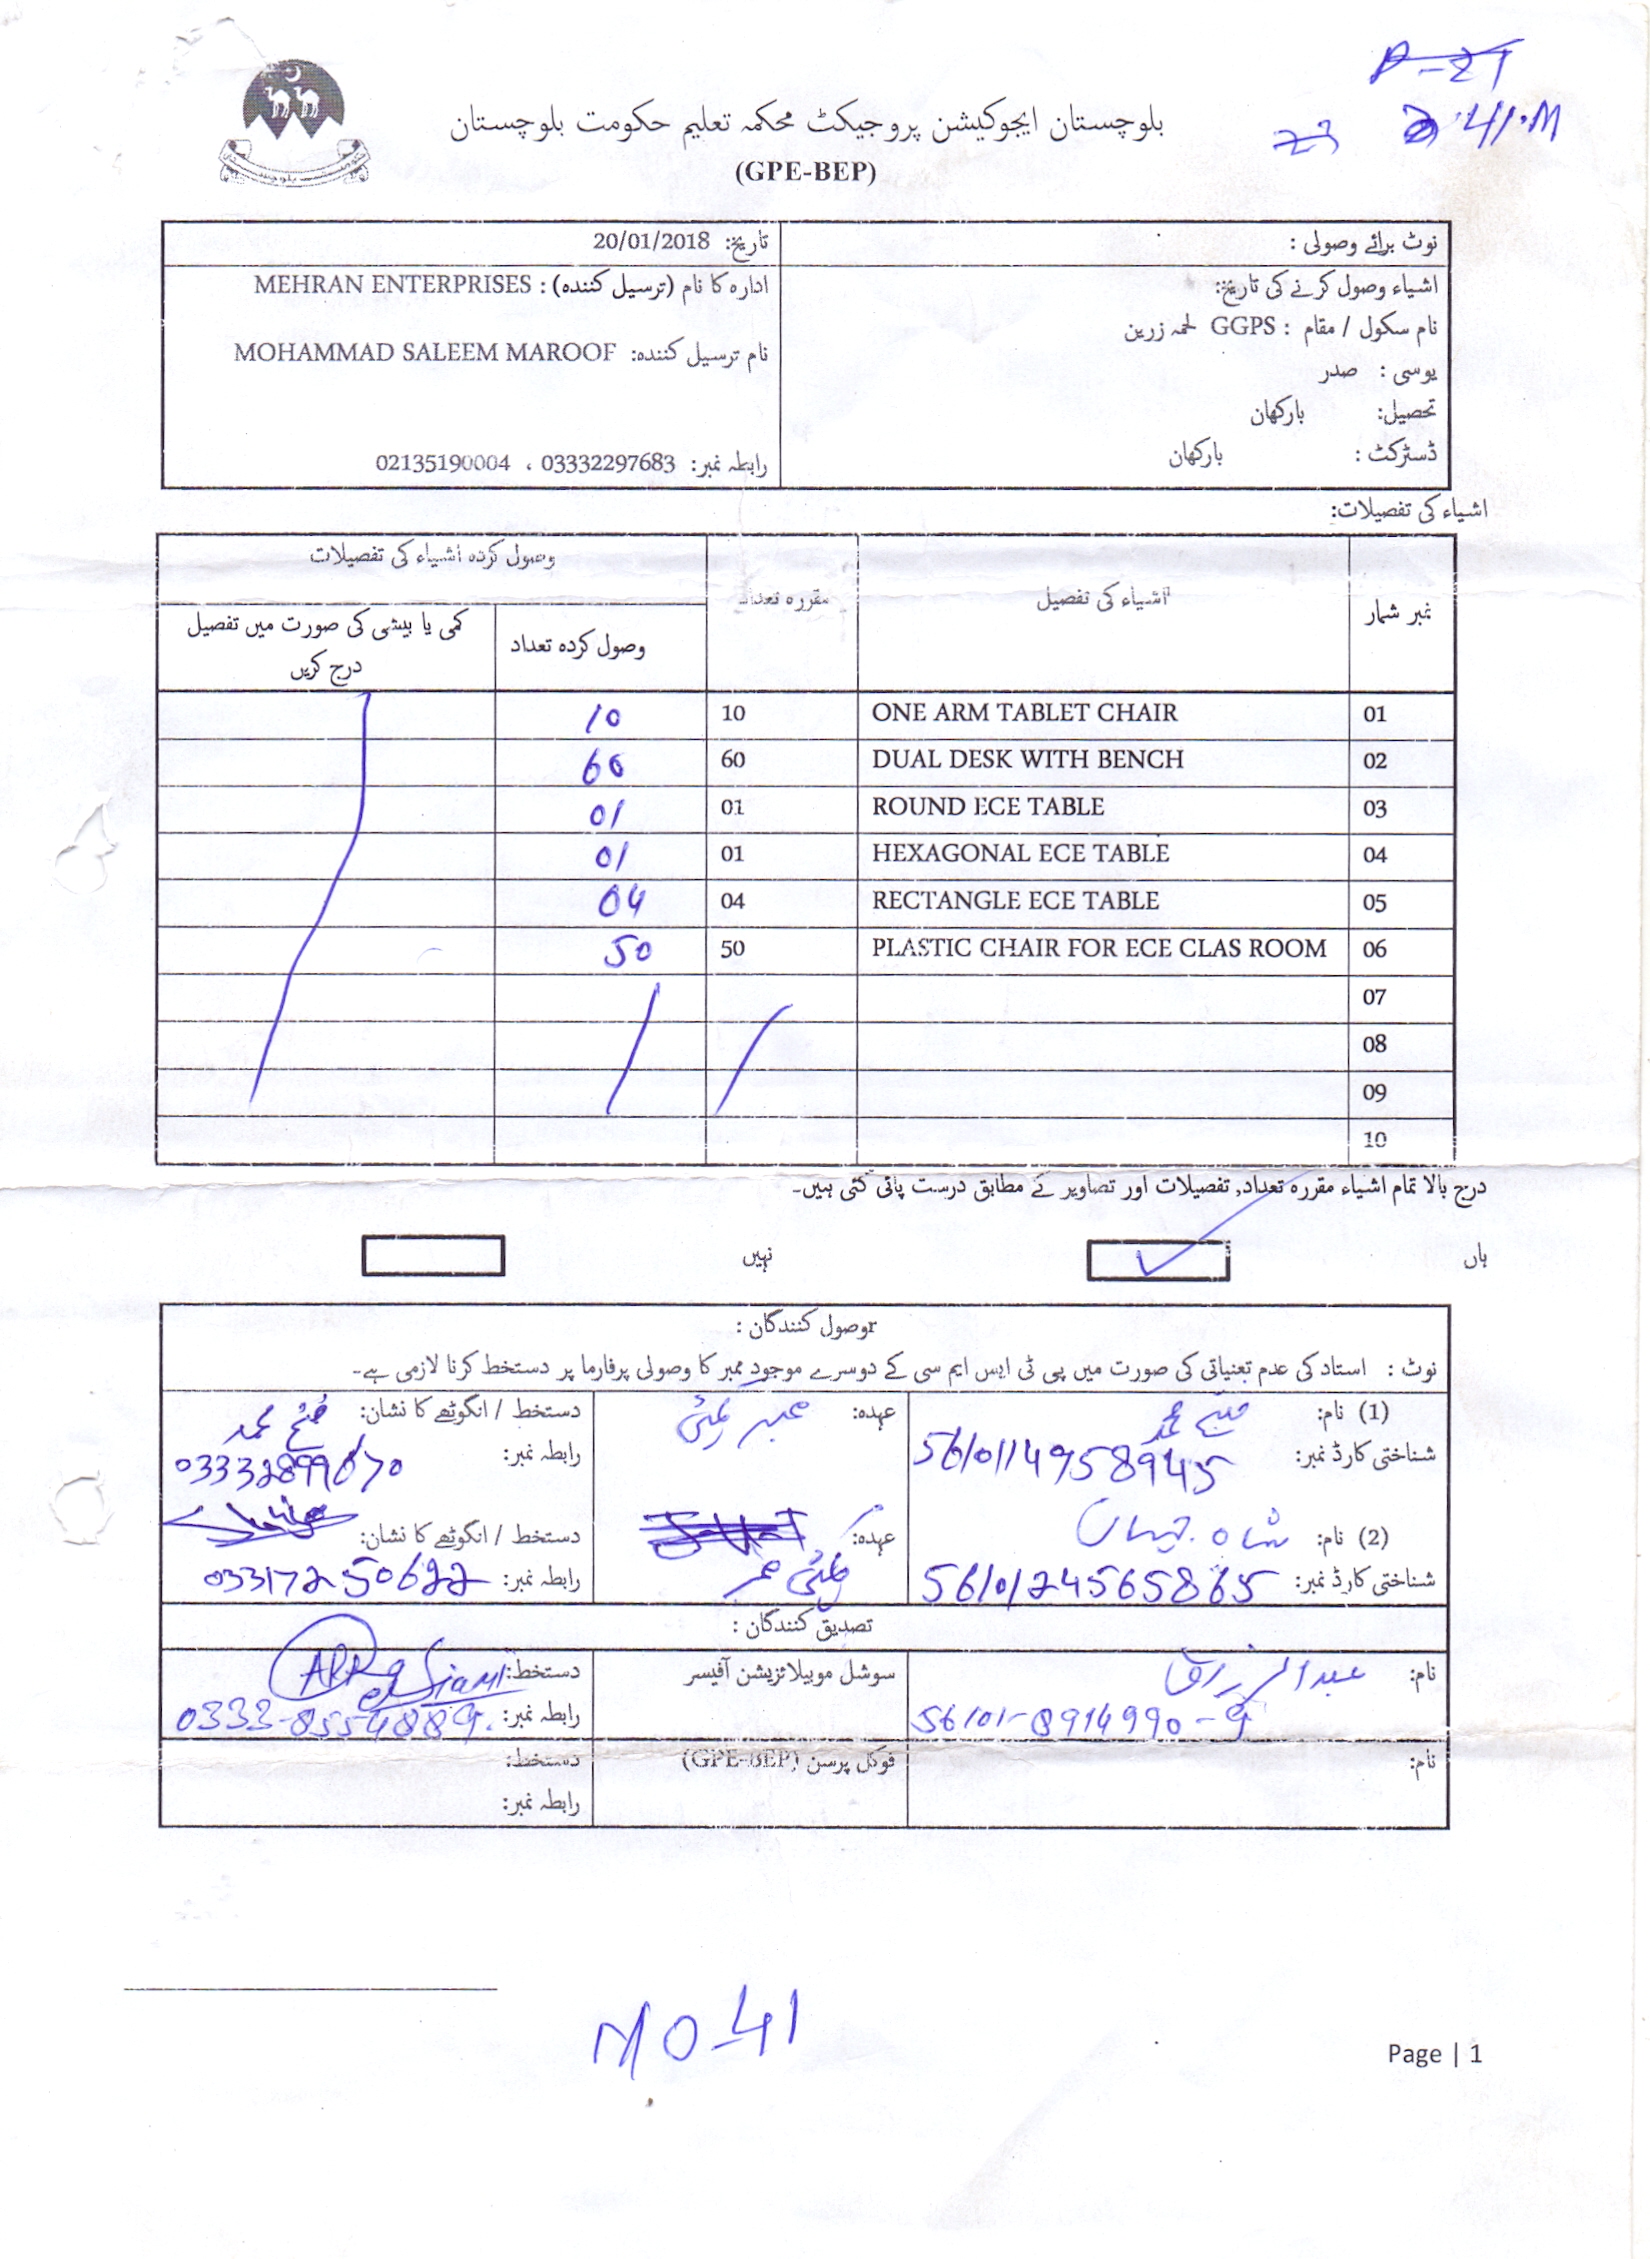 بلوچستان ایجوکیشن پروجیکٹ محکمہ تعلیم حکومت بلوچستان
(GPE-BEP)
نوٹ برائے وصولی :
تاریخ: 20/01/2018
اشیاء وصول کرنے کی تاریخ:
نام سکول / مقام : GGPS لحمہ زرین
یوسی : صدر
تحصیل: بارکھان
ڈسٹرکٹ : بارکھان
ادارہ کا نام (ترسیل کنندہ) : MEHRAN ENTERPRISES
نام ترسیل کنندہ: MOHAMMAD SALEEM MAROOF
رابطہ نمبر: 03332297683 ، 02135190004
اشیاء کی تفصیلات:
نمبر شمار اشیاء کی تفصیل مقررہ تعداد وصول کردہ اشیاء کی تفصیلات
وصول کردہ تعداد کمی یا بیشی کی صورت میں تفصیل
درج کریں
01 ONE ARM TABLET CHAIR 10 10
02 DUAL DESK WITH BENCH 60 60
03 ROUND ECE TABLE 01 01
04 HEXAGONAL ECE TABLE 01 01
05 RECTANGLE ECE TABLE 04 04
06 PLASTIC CHAIR FOR ECE CLAS ROOM 50 50
07
08
09
10
درج بالا تمام اشیاء مقررہ تعداد, تفصیلات اور تصاویر کے مطابق درست پائی گئی ہیں۔
ہاں نہیں
rوصول کنندگان :
نوٹ : استاد کی عدم تعنیاتی کی صورت میں پی ٹی ایس ایم سی کے دوسرے موجود ممبر کا وصولی پرفارما پر دستخط کرنا لازمی ہے۔
(1) نام: فتح محمد عہدہ: دستخط / انگوٹھے کا نشان: فتح محمد
شناختی کارڈ نمبر: 5610114958945 رابطہ نمبر: 03332899670
(2) نام: شاہ جہان عہدہ: دستخط / انگوٹھے کا نشان:
شناختی کارڈ نمبر: 5610124565865 رابطہ نمبر: 03317250622
تصدیق کنندگان :
نام: عبدالرزاق سوشل موبیلائزیشن آفیسر دستخط:
56101-8914990-9 رابطہ نمبر: 0333-8554889
نام: فوکل پرسن (GPE-BEP) دستخط:
رابطہ نمبر:
MO-41
Page | 1